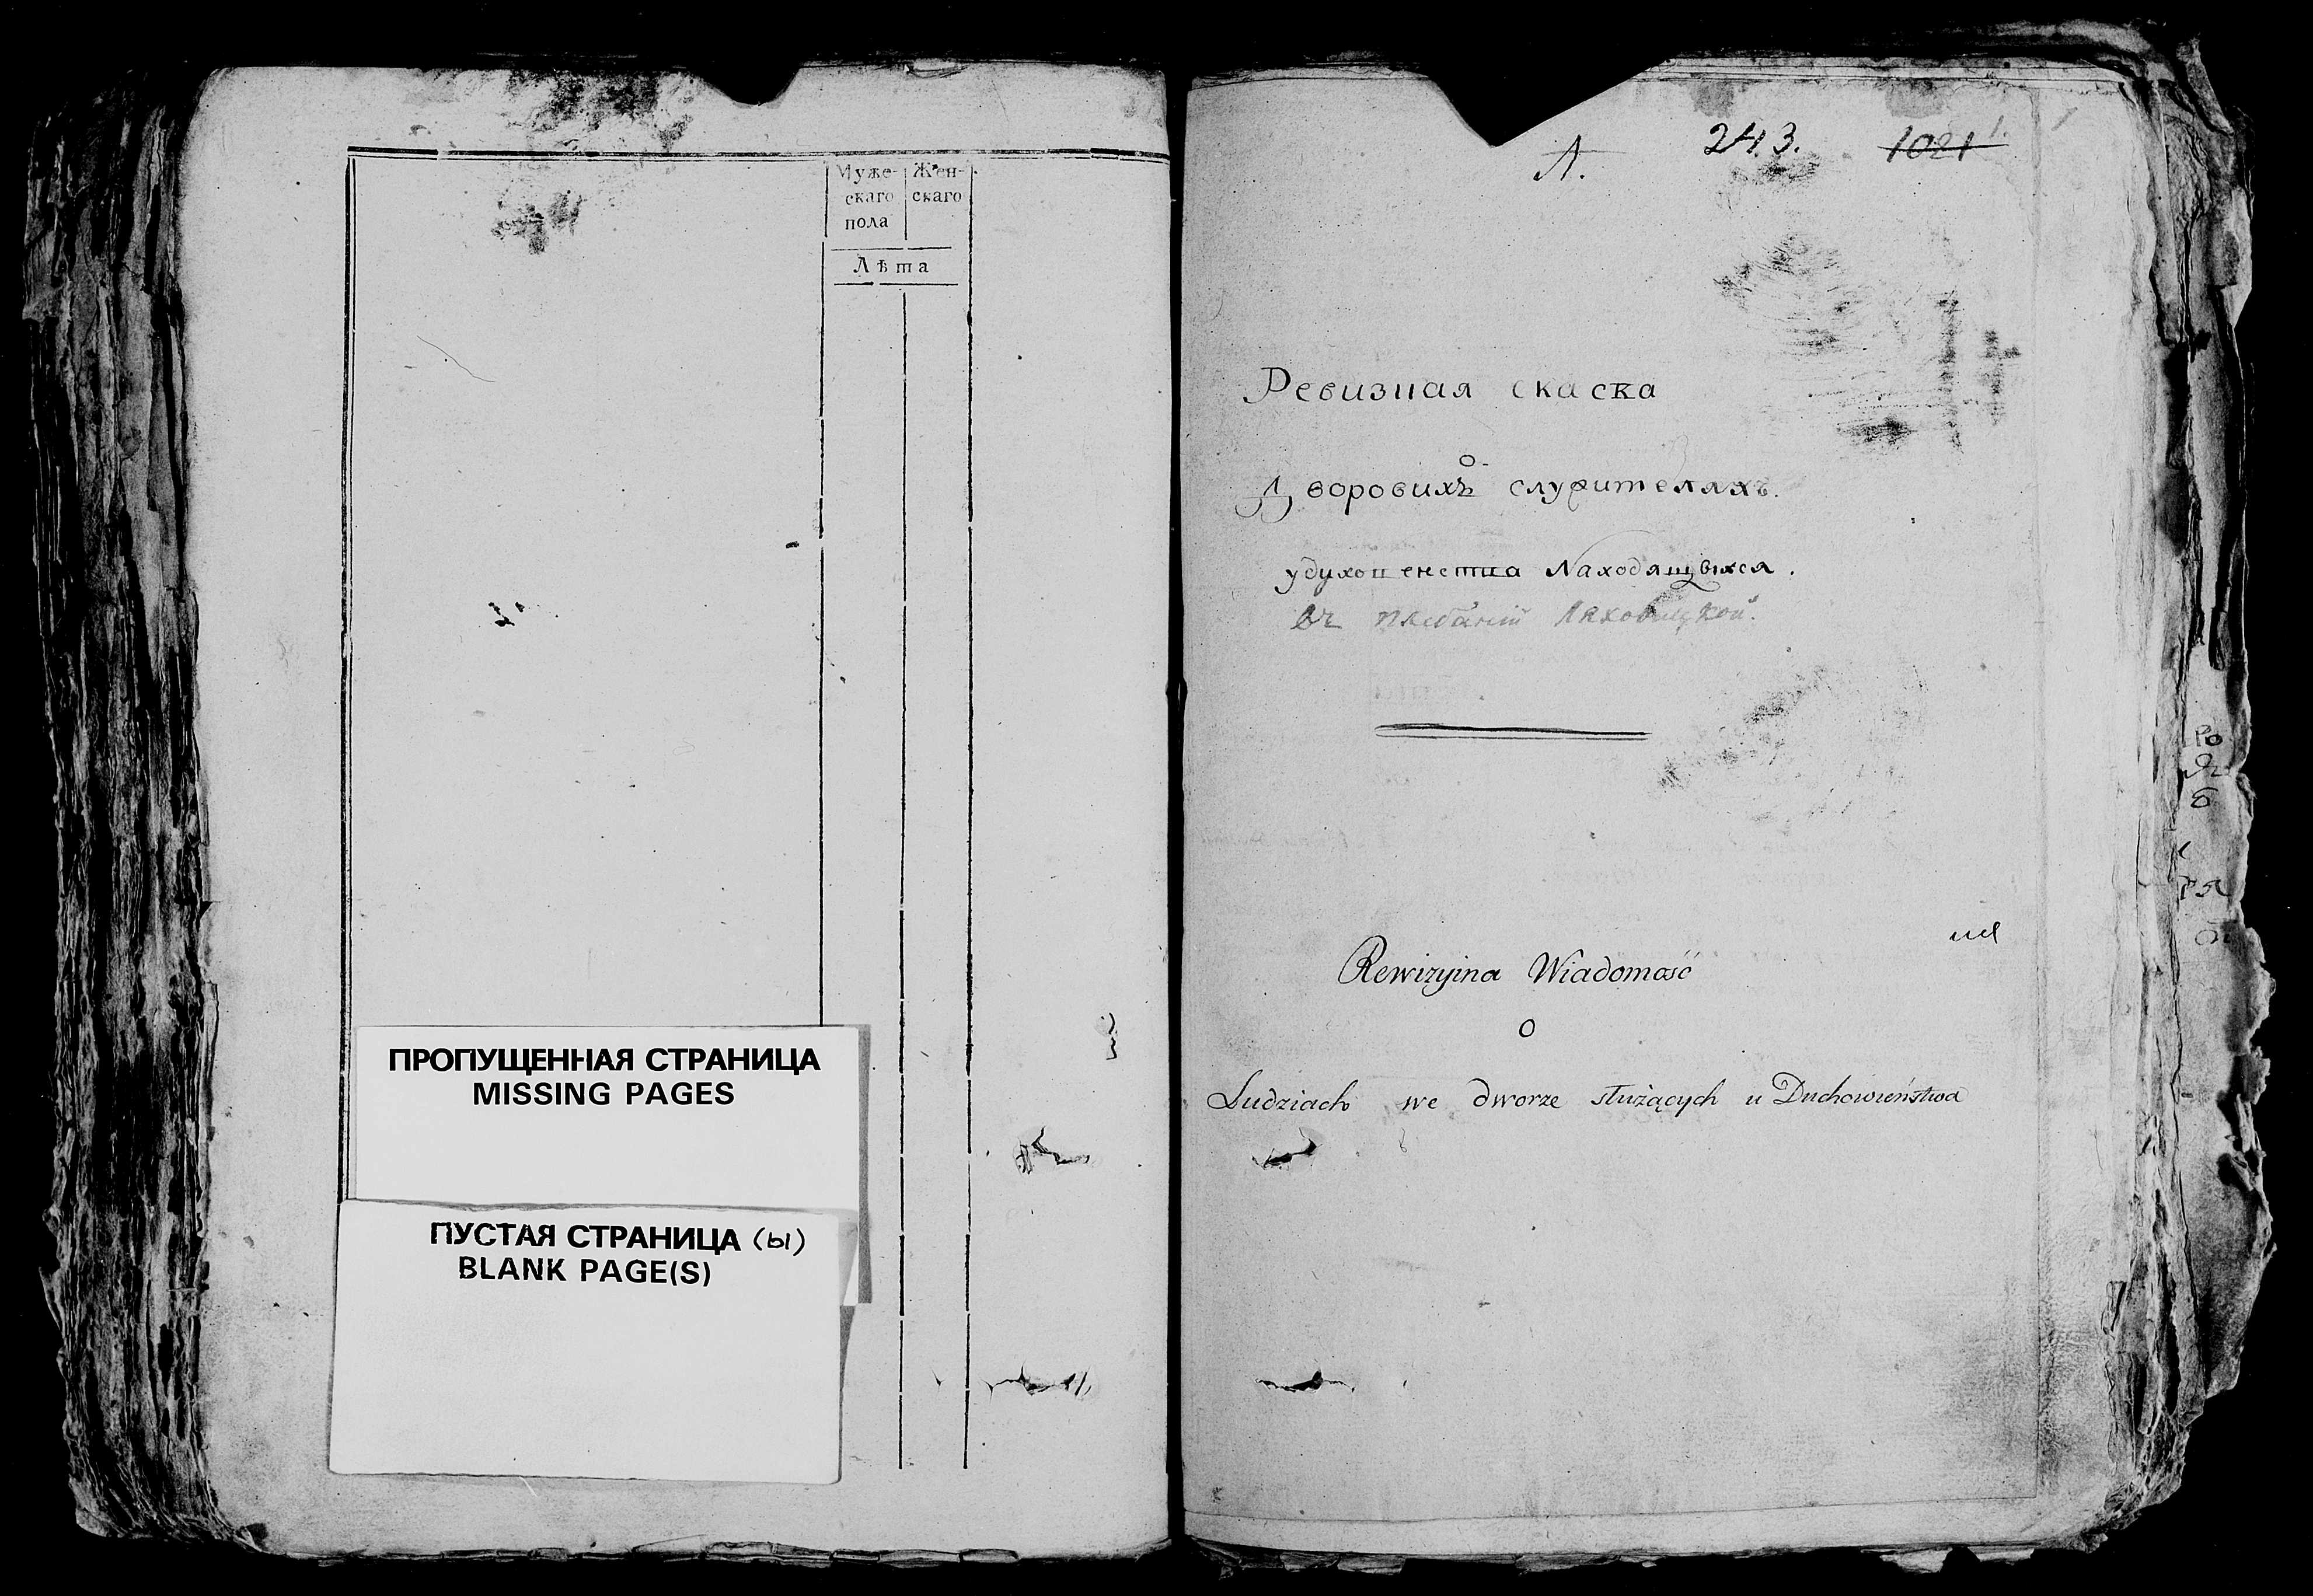 Муже-
скаго
пола
Жен-
скаго
Лѣта
ПРОПУЩЕННАЯ СТРАНИЦА
MISSING PAGES
ПУСТАЯ СТРАНИЦА (ы)
BLANK PAGE(S)
Л. 243. 1021
Ревизная скаска
о
Дворовихъ служителяхъ.
удуховенства Находящихся.
въ плебаніи Ляховицкой.
Rewizyjna Wiadomość
O
Ludziach we dworze służących u Duchowieństwa